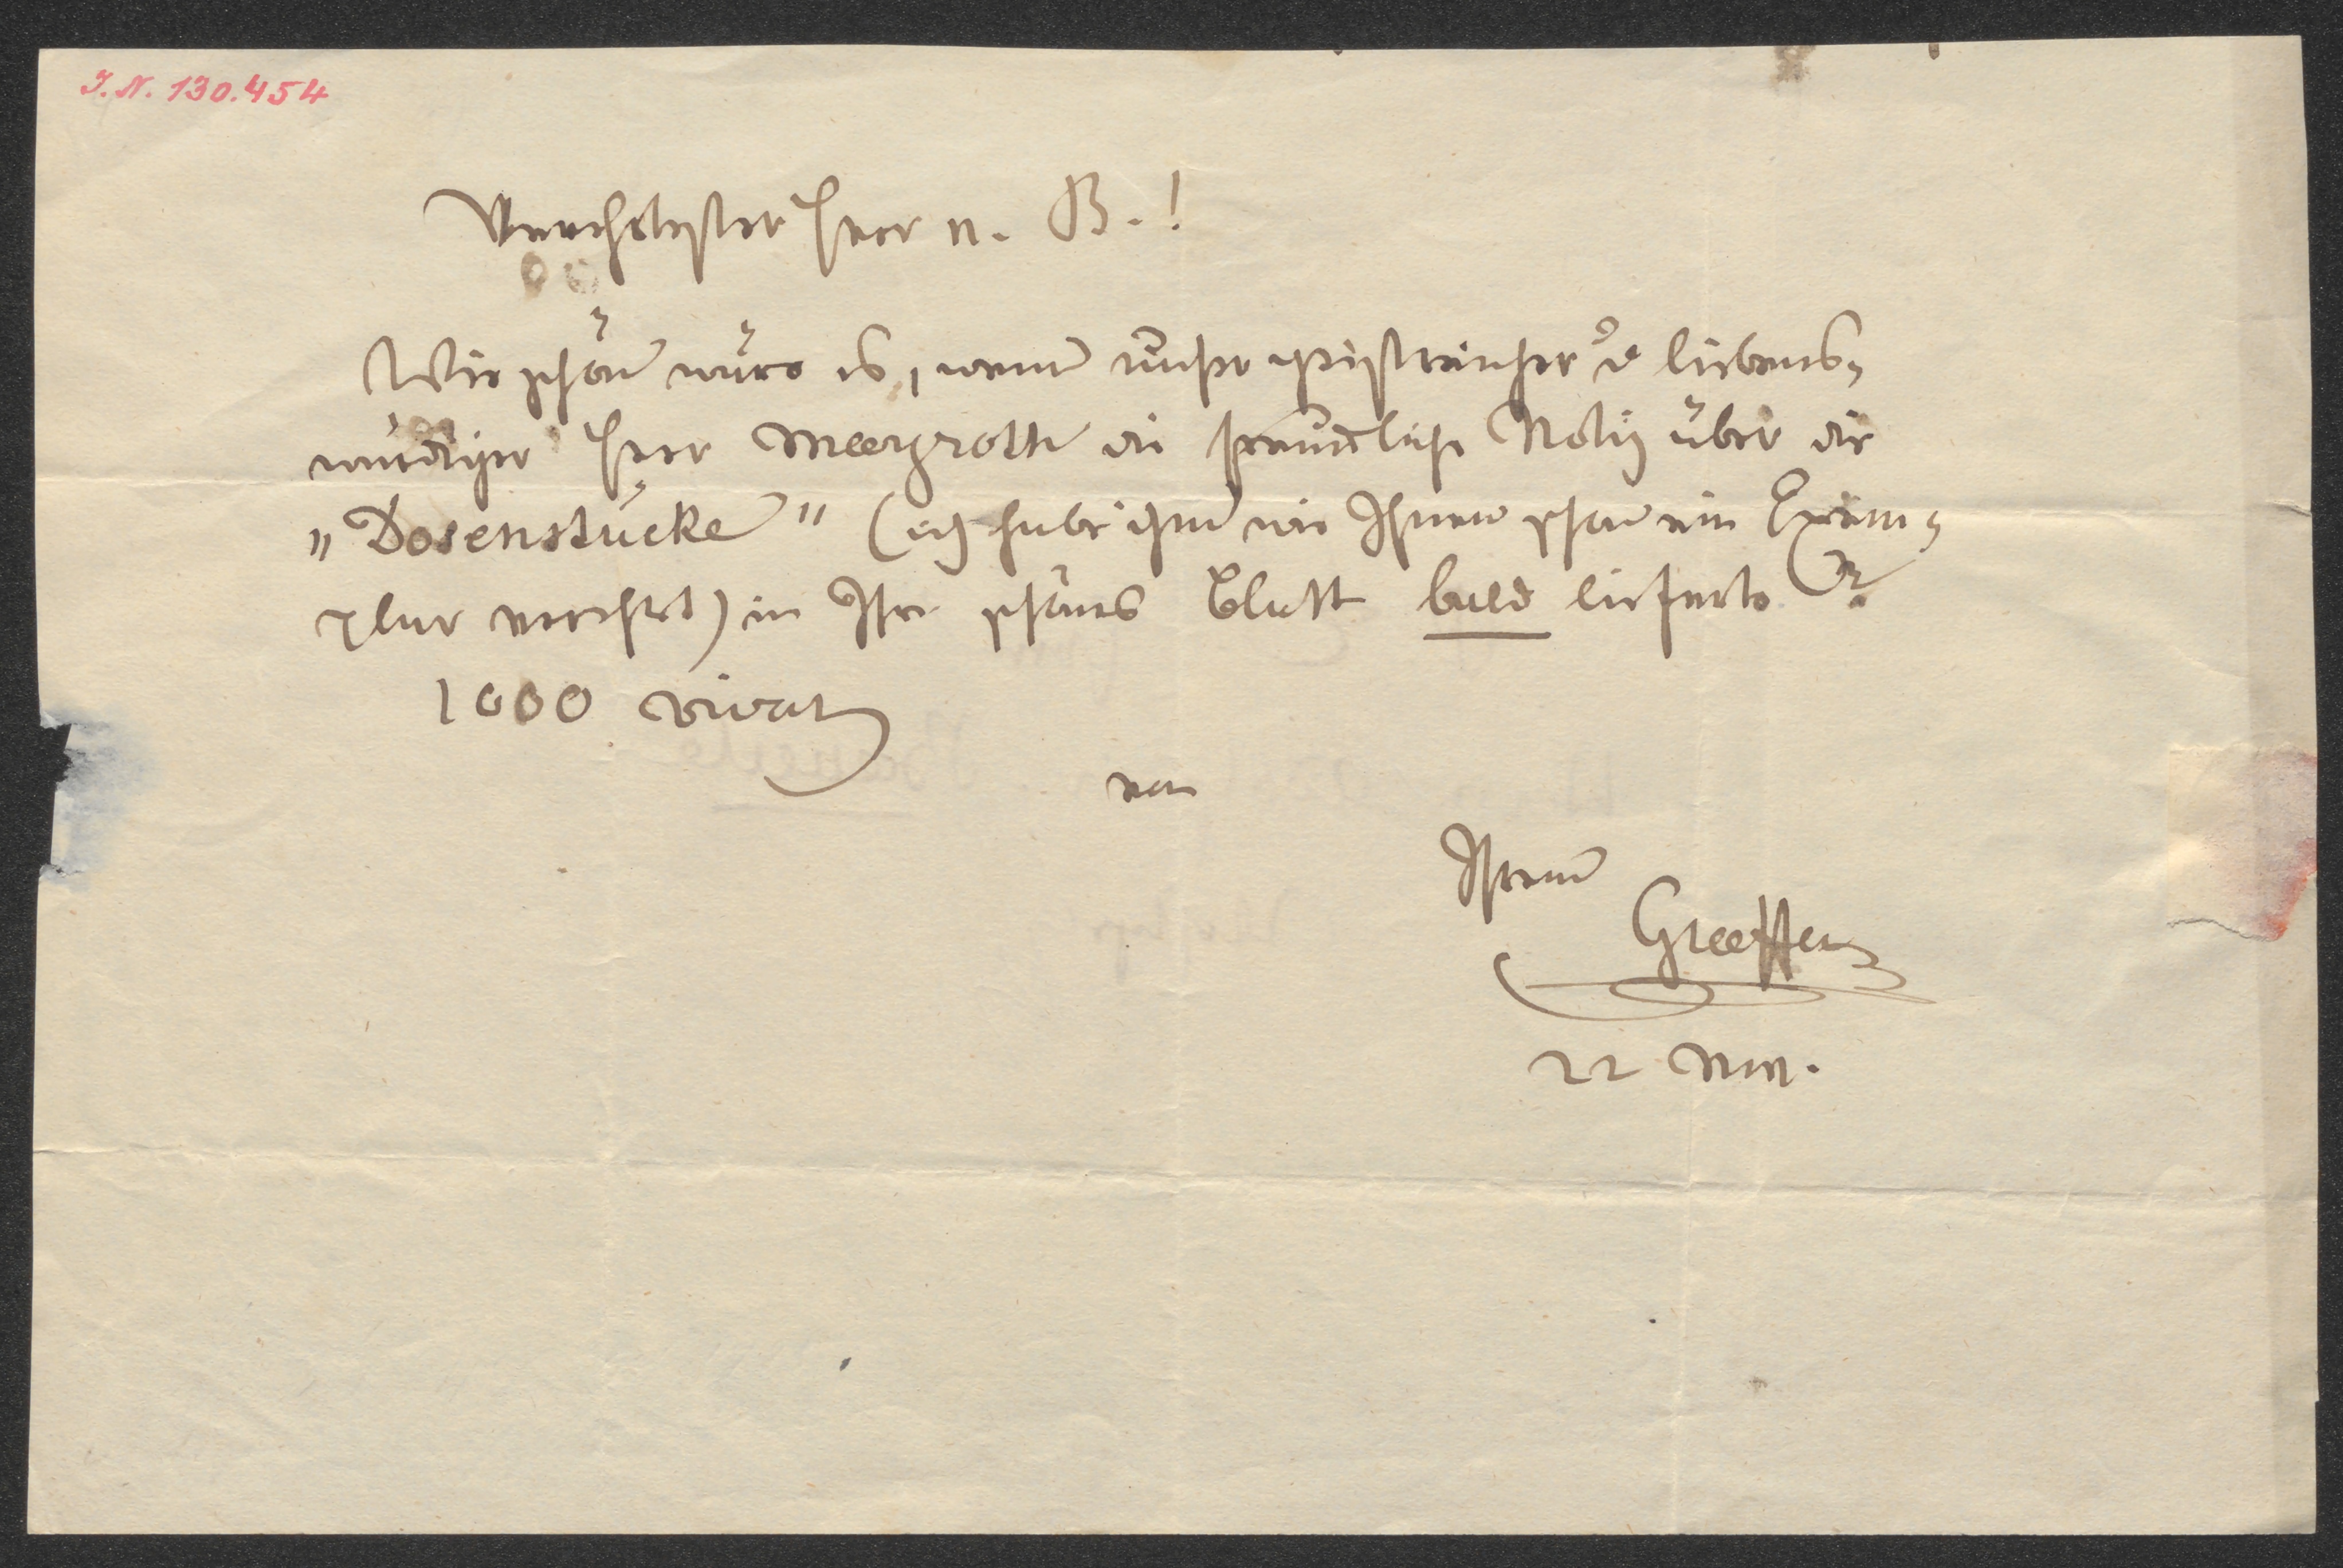 I. N. 130.454
Verehrtester Herr v. B.!
Wie schön wäre es, wenn unser geistreicher u liebens-
würdiger Herr Meergrotte die freundliche Notiz über die
„Dosenstücke" (ich habe ihm wie Ihnen schon ein Exem-
plar verehrt) in Ihr schönes Blatt bald lieferte?
1000 vivat
von
Ihrem
Graeffer
22 Nov.